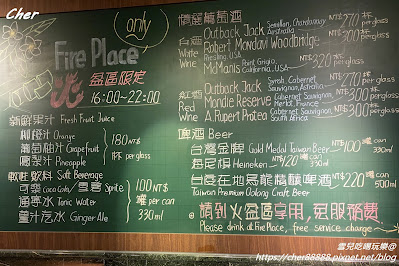 Cher
only
Fire Place
火 盆區限定
16:00~22:00
新鮮果汁 Fresh Fruit Juice
柳橙汁 Orange
葡萄柚汁 Grapefruit
鳳梨汁 Pineapple
180 NT$/杯 per glass
軟性飲料 Soft Beverage
可樂 Coca Cola / 雪碧 Sprite
通寧水 Tonic Water
薑汁汽水 Ginger Ale
100 NT$/罐 per can
330ml
精選葡萄酒
白酒 White Wine
Outback Jack Semillon, Chardonnay Australia NT$ 270 杯 per glass
Robert Mondavi Woodbridge Riesling, USA NT$ 300 杯 per glass
McManis Pinot Grigio, California, USA NT$ 320 杯 per glass
紅酒 Red Wine
Outback Jack Syrah, Cabernet Sauvignon, Australia NT$ 270 杯 per glass
Mondie Reserve Cabernet Sauvignon, Merlot, France NT$ 300 杯 per glass
A Rupert Protea Cabernet Sauvignon, South Africa NT$ 300 杯 per glass
啤酒 Beer
台灣金牌 Gold Medal Taiwan Beer NT$ 100 罐 can 330ml
海尼根 Heineken NT$ 120 罐 can 330ml
台虎在地烏龍精釀啤酒 NT$ 220 罐 can 500ml
Taiwan Premium Oolong Craft Beer
請到火盆區享用，免服務費
Please drink at Fire Place, free service charge
雲兒吃喝玩樂@
https://cher88888.pixnet.net/blog